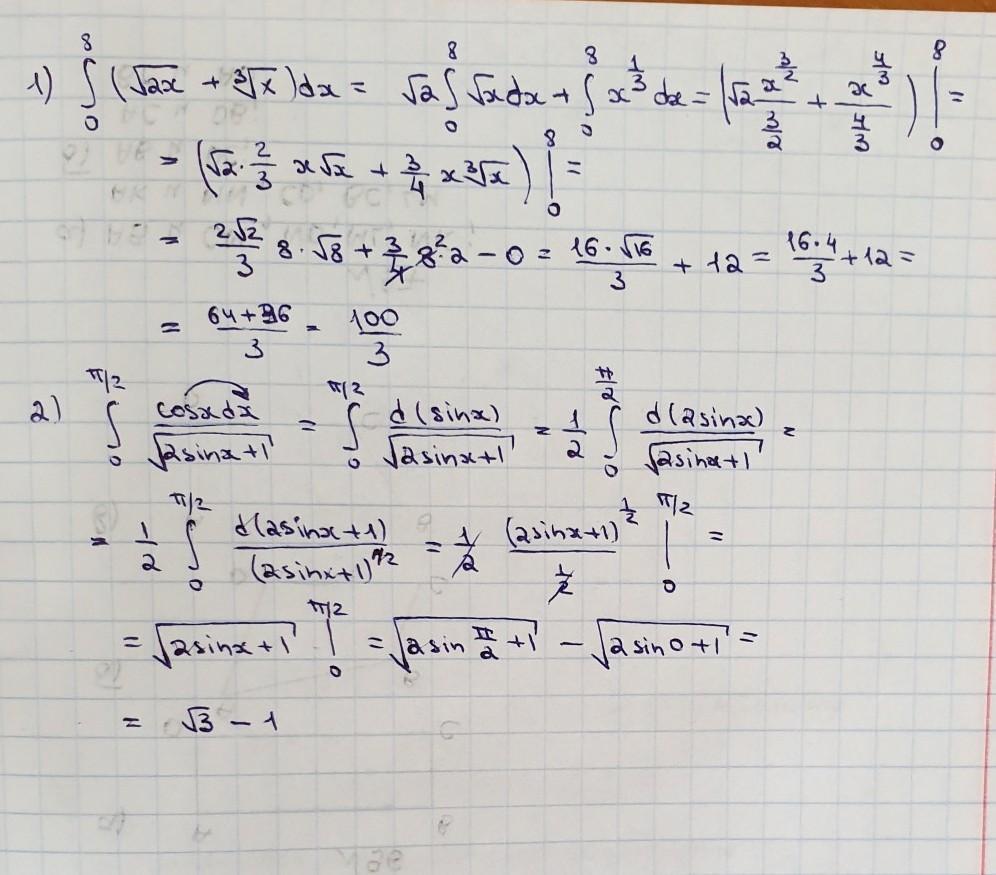 1) ∫₀⁸ (√2x + ∛x) dx = √2 ∫₀⁸ √x dx + ∫₀⁸ x^(1/3) dx = (√2 x^(3/2)/(3/2) + x^(4/3)/(4/3)) |₀⁸ =
= (√2 · 2/3 x√x + 3/4 x∛x) |₀⁸ =
= 2√2/3 8 · √8 + 3/4 8² · 2 − 0 = 16 · √16/3 + 12 = 16 · 4/3 + 12 =
= (64 + 36)/3 = 100/3
2) ∫₀^(π/2) cosx dx/√(2sinx + 1) = ∫₀^(π/2) d(sinx)/√(2sinx + 1) = 1/2 ∫₀^(π/2) d(2sinx)/√(2sinx + 1) =
= 1/2 ∫₀^(π/2) d(2sinx + 1)/(2sinx + 1)^(1/2) = 1/2 (2sinx + 1)^(1/2)/(1/2) |₀^(π/2) =
= √(2sinx + 1) |₀^(π/2) = √(2sin π/2 + 1) − √(2sin0 + 1) =
= √3 − 1